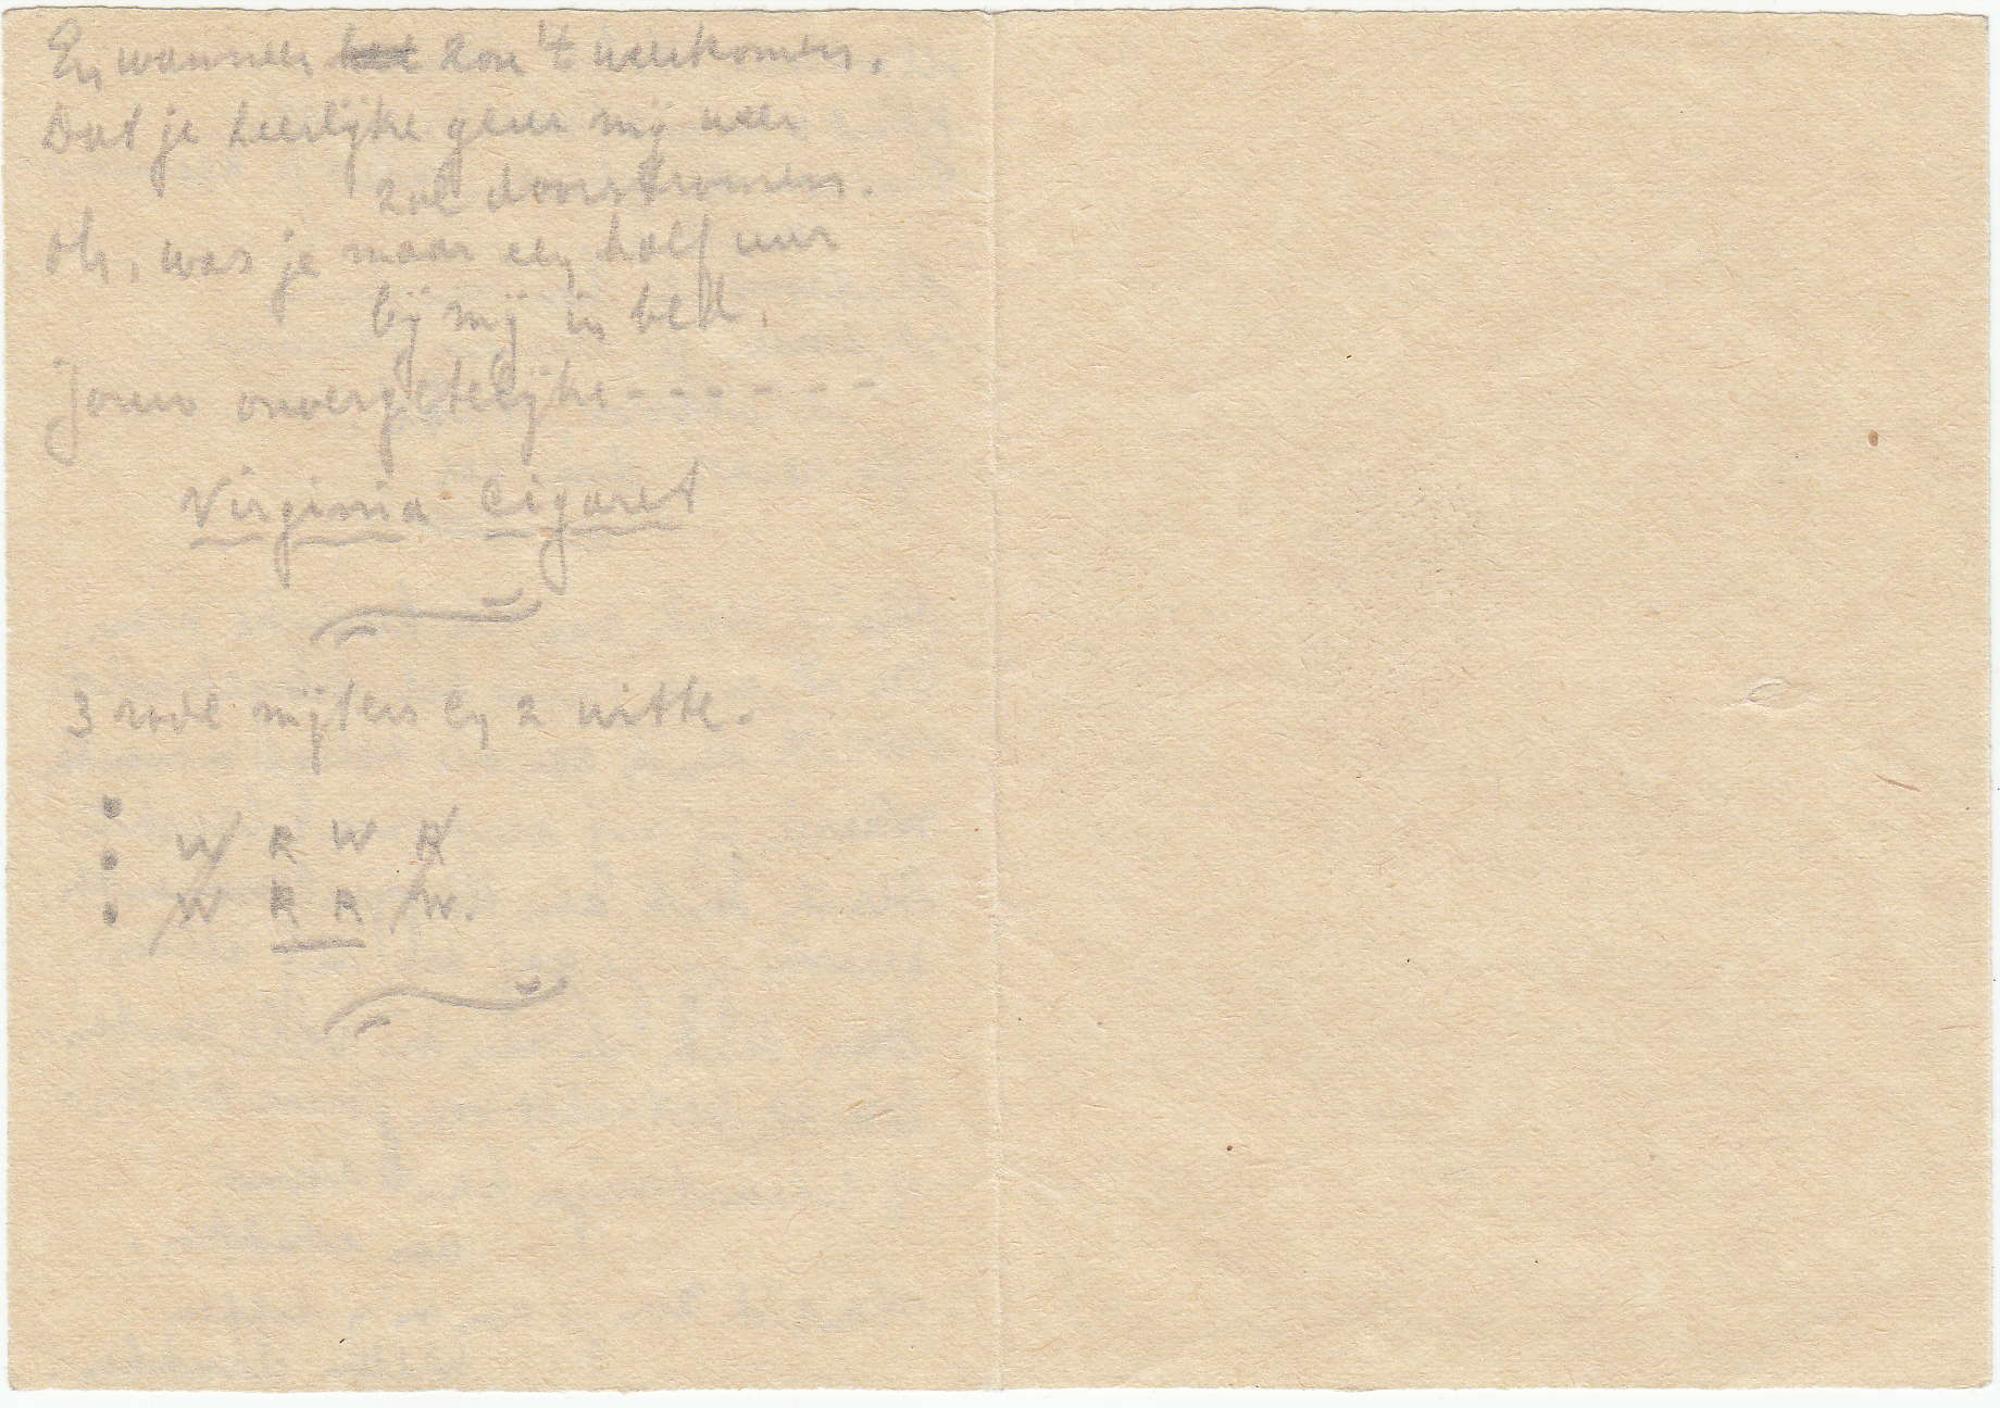 En wanneer zou 't weerkomen.
Dat je heerlijke geur mij weer
zal doorstromen.
Oh, was je maar een half uur
bij mij in bed.
Jouw onvergetelijke - - - - - -
Virginia Cigaret
3 rode mijters en 2 witte.
W R W R
W R R W.